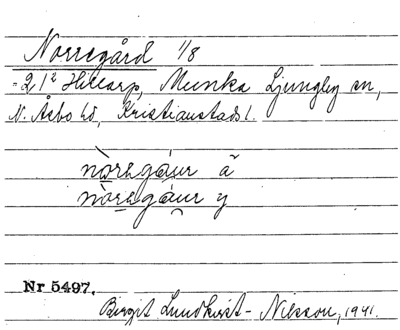 Norregård 1/8
= 2 1² Hillarp, Munka Ljungby sn,
N. Åsbo hd, Kristianstads l.
nòrægáur ä̃
nòrægáur y
Nr 5497.
Birgit Lundkvist-Nilsson, 1941.